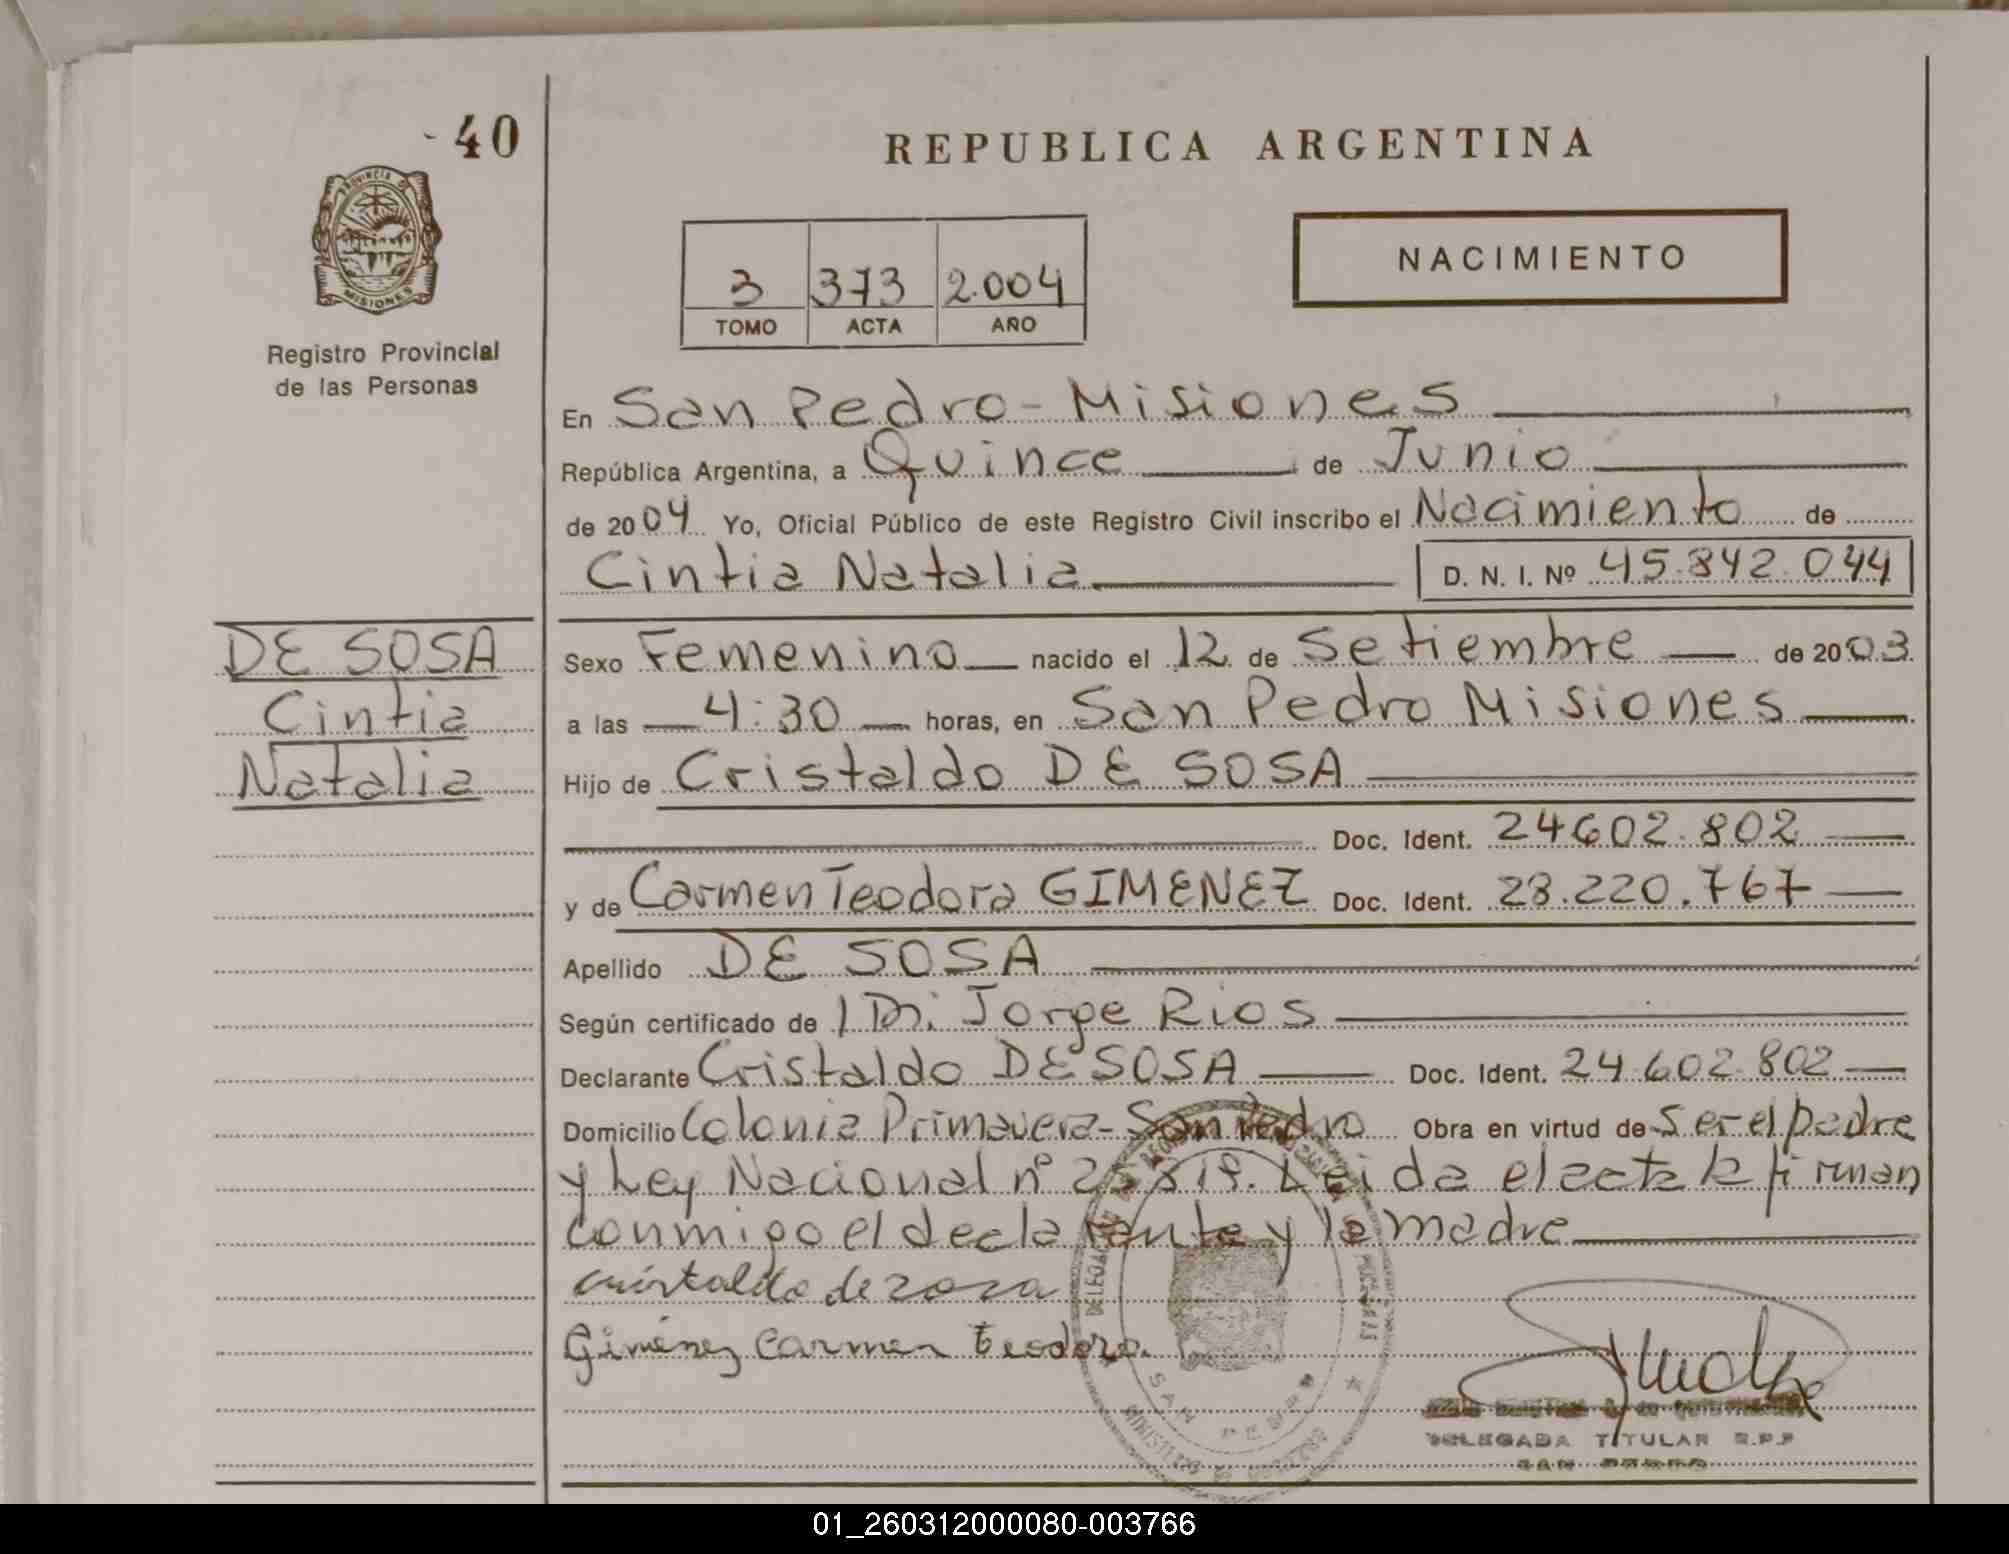 - 40
REPUBLICA ARGENTINA
PROVINCIA DE
MISIONES
Registro Provincial
de las Personas
3 373 2.004
TOMO ACTA AÑO
NACIMIENTO
En San Pedro - Misiones
República Argentina, a Quince de Junio
de 2004 Yo, Oficial Público de este Registro Civil inscribo el Nacimiento de
Cintia Natalia D. N. I. Nº 45.842.044
DE SOSA
Cintia
Natalia
Sexo Femenino nacido el 12 de Setiembre de 2003
a las 4:30 horas, en San Pedro Misiones
Hijo de Cristaldo DE SOSA
Doc. Ident. 24602.802
y de Carmen Teodora GIMENEZ Doc. Ident. 28.220.767
Apellido DE SOSA
Según certificado de Jorge Rios
Declarante Cristaldo DE SOSA Doc. Ident. 24.602.802
Domicilio Colonia Primavera - San Pedro Obra en virtud de Ser el padre
y Ley Nacional nº Leida el acta la firman
conmigo el declarante y la madre
cristaldo de zoza
Giménez Carmen teodora.
SAN PEDRO
DELEGADA TITULAR R.P.P
SAN PEDRO
01_260312000080-003766